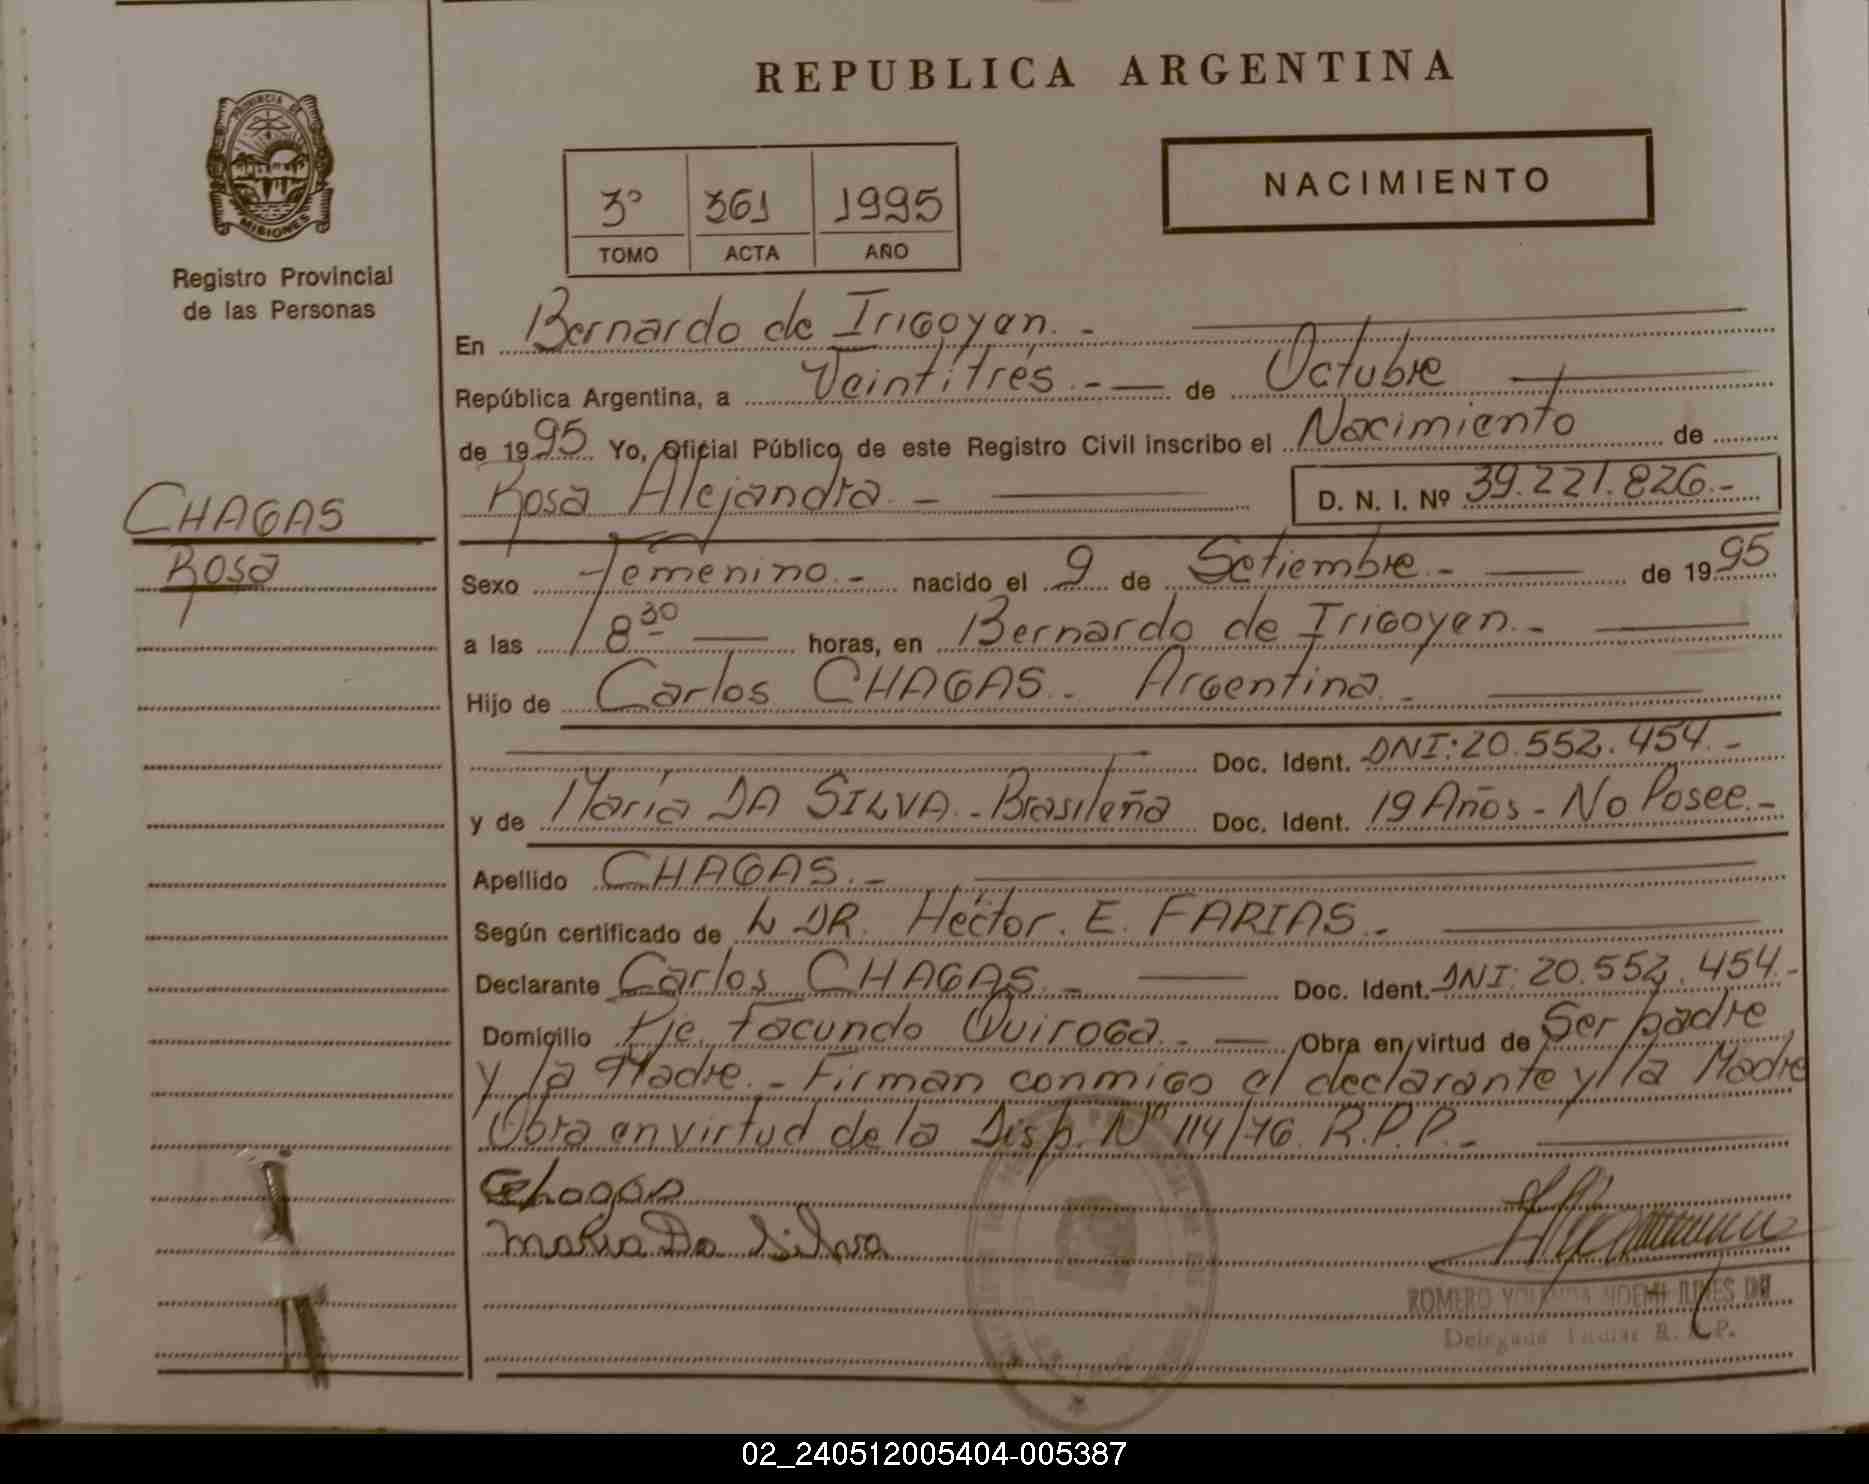 REPUBLICA ARGENTINA
PROVINCIA DE
MISIONES
Registro Provincial
de las Personas
3º 361 1995
TOMO ACTA AÑO
NACIMIENTO
En Bernardo de Irigoyen.-
República Argentina, a Veintitrés.- de Octubre
de 1995 Yo, Oficial Público de este Registro Civil inscribo el Nacimiento de
CHAGAS
Rosa
Rosa Alejandra.- D. N. I. Nº 39.221.826.-
Sexo Femenino.- nacido el 9 de Setiembre.- de 1995
a las 8 30 horas, en Bernardo de Irigoyen.-
Hijo de Carlos CHAGAS.- Argentina.-
Doc. Ident. DNI: 20.552.454.-
y de María DA SILVA.- Brasileña Doc. Ident. 19 Años - No Posee.-
Apellido CHAGAS.-
Según certificado de DR. Héctor. E. FARIAS.-
Declarante Carlos CHAGAS.- Doc. Ident. DNI: 20.552.454.-
Domicilio Pje. Facundo Quiroga.- Obra en virtud de Ser padre
y la Madre.- Firman conmigo el declarante y la Madre
Obra en virtud de la Disp. Nº 114/76 R.P.P.-
Chagas
Maria Da Silva
ROMERO YOLANDA NOEMI
Delegada R. P.
02_240512005404-005387